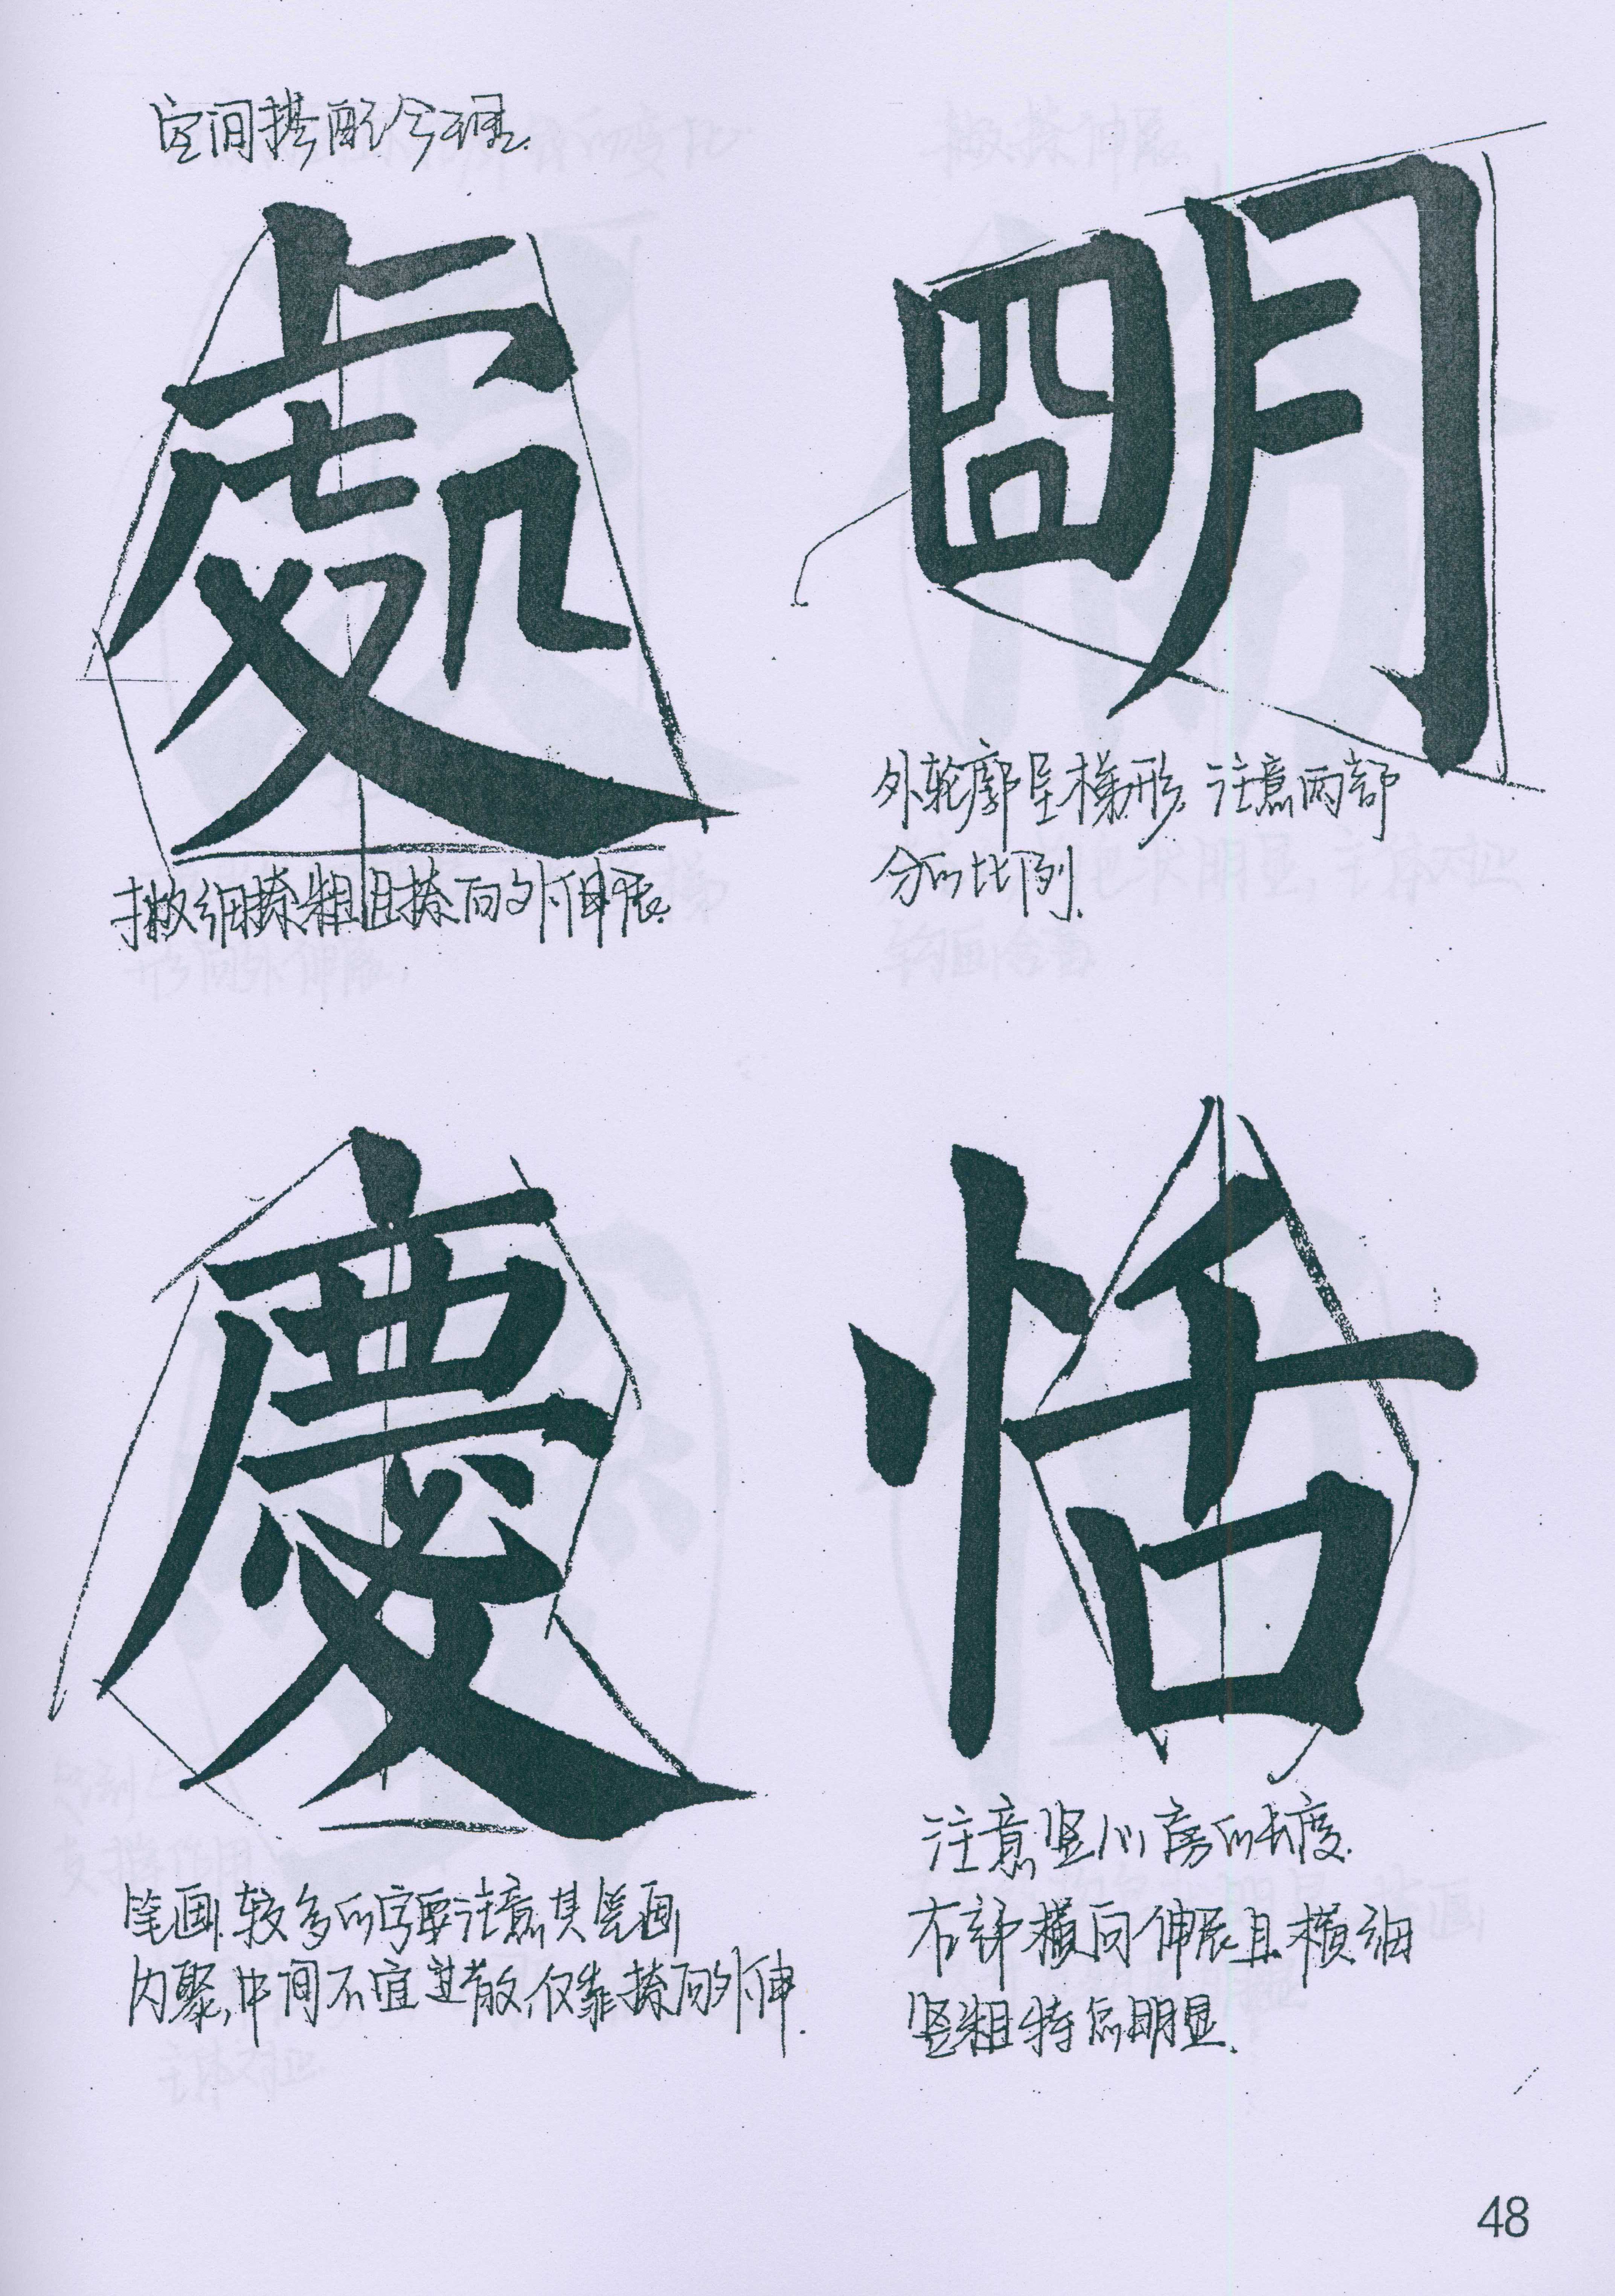 空间搭配合理.
處
撇细捺粗且捺向外伸展.
明
外轮廓呈梯形.注意两部
分的比例.
慶
笔画较多的字要注意其笔画
内聚,中间不宜过散,仅靠捺向外伸.
恬
注意竖心旁的长度.
右部横向伸展且横细
竖粗特点明显.
48